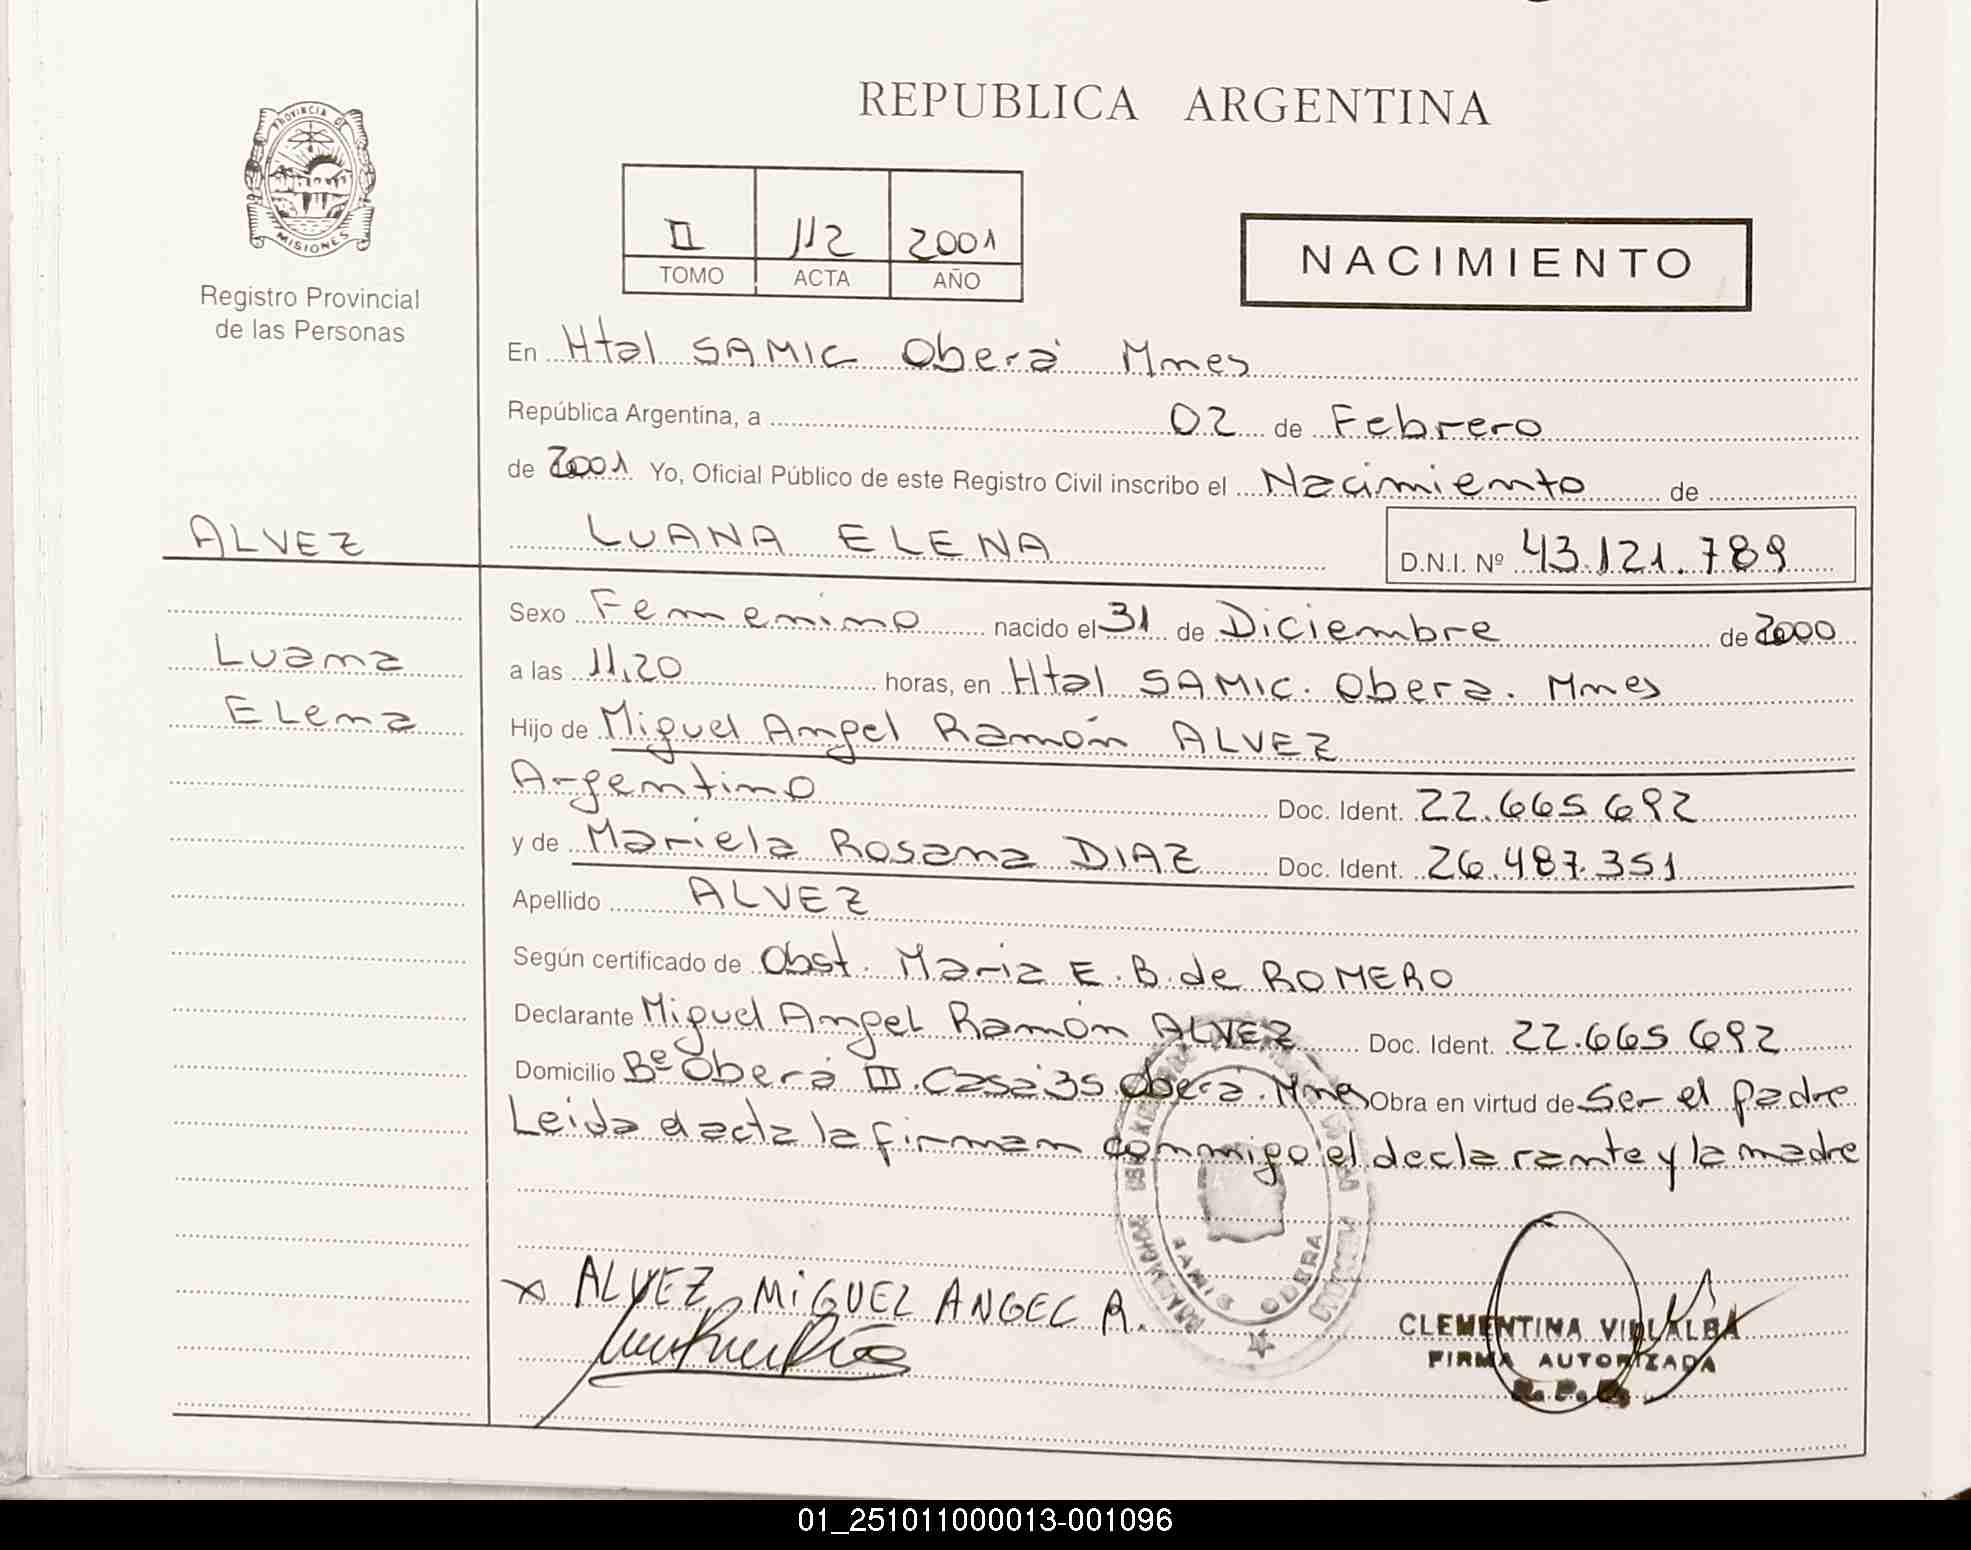 REPUBLICA ARGENTINA
PROVINCIA DE
MISIONES
Registro Provincial
de las Personas
II 112 2001
TOMO ACTA AÑO
NACIMIENTO
En Htal SAMIC Oberá Mnes
República Argentina, a 02 de Febrero
de 2001 Yo, Oficial Público de este Registro Civil inscribo el Nacimiento de
ALVEZ
LUANA ELENA D.N.I. Nº 43.121.789
Sexo Femenino nacido el 31 de Diciembre de 2000
Luana
a las 11,20 horas, en Htal SAMIC. Obera. Mnes
Elena
Hijo de Miguel Angel Ramón ALVEZ
Argentino Doc. Ident. 22.665 692
y de Mariela Rosana DIAZ Doc. Ident. 26.487.351
Apellido ALVEZ
Según certificado de Obst. Maria E. B. de ROMERO
Declarante Miguel Angel Ramón ALVEZ Doc. Ident. 22.665 692
Domicilio Bº Oberá III. Casa 35. Oberá. Mnes Obra en virtud de Ser el padre
Leida el acta la firman conmigo el declarante y la madre
x ALVEZ, MIGUEL ANGEL R.
CLEMENTINA VILLALBA
FIRMA AUTORIZADA
01_251011000013-001096